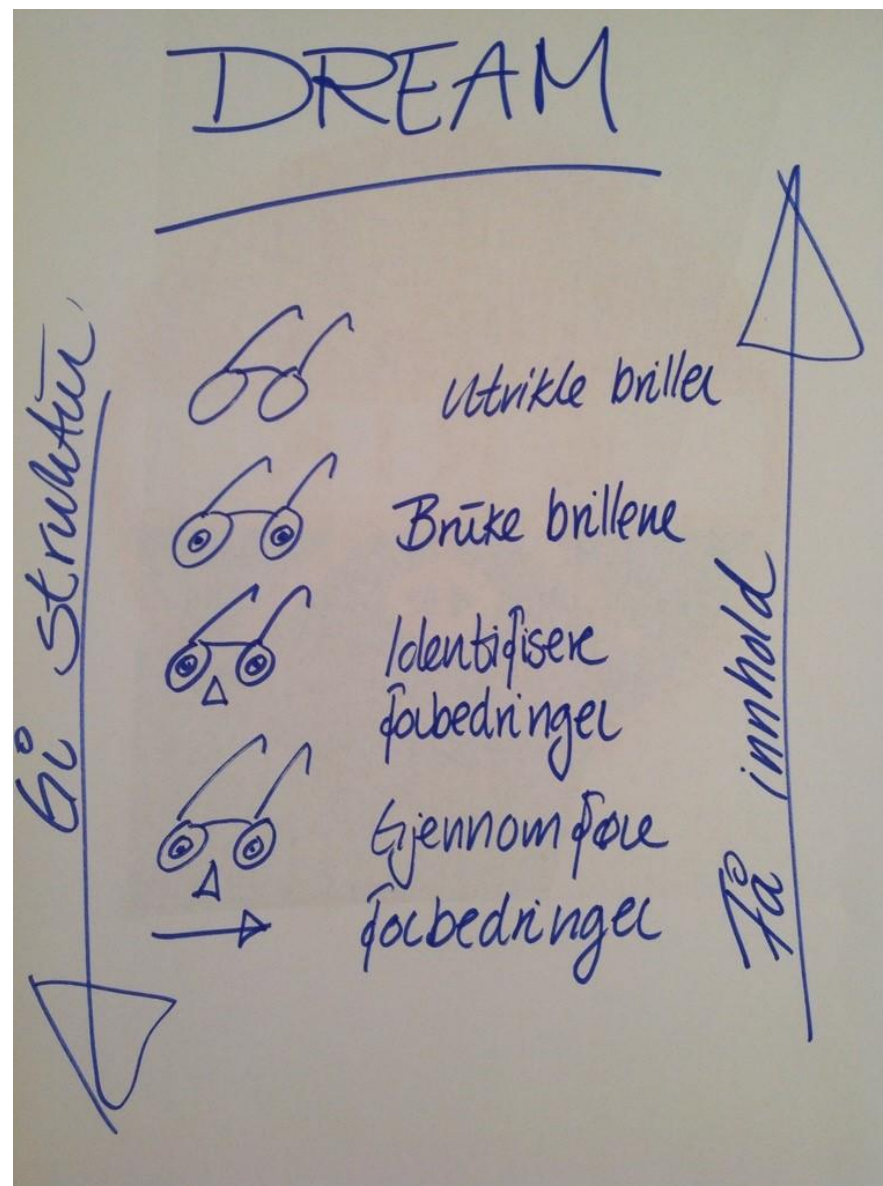 DREAM
Gi struktur
Utvikle briller
Bruke brillene
Identifisere
forbedringer
Gjennomføre
forbedringer
Få innhold